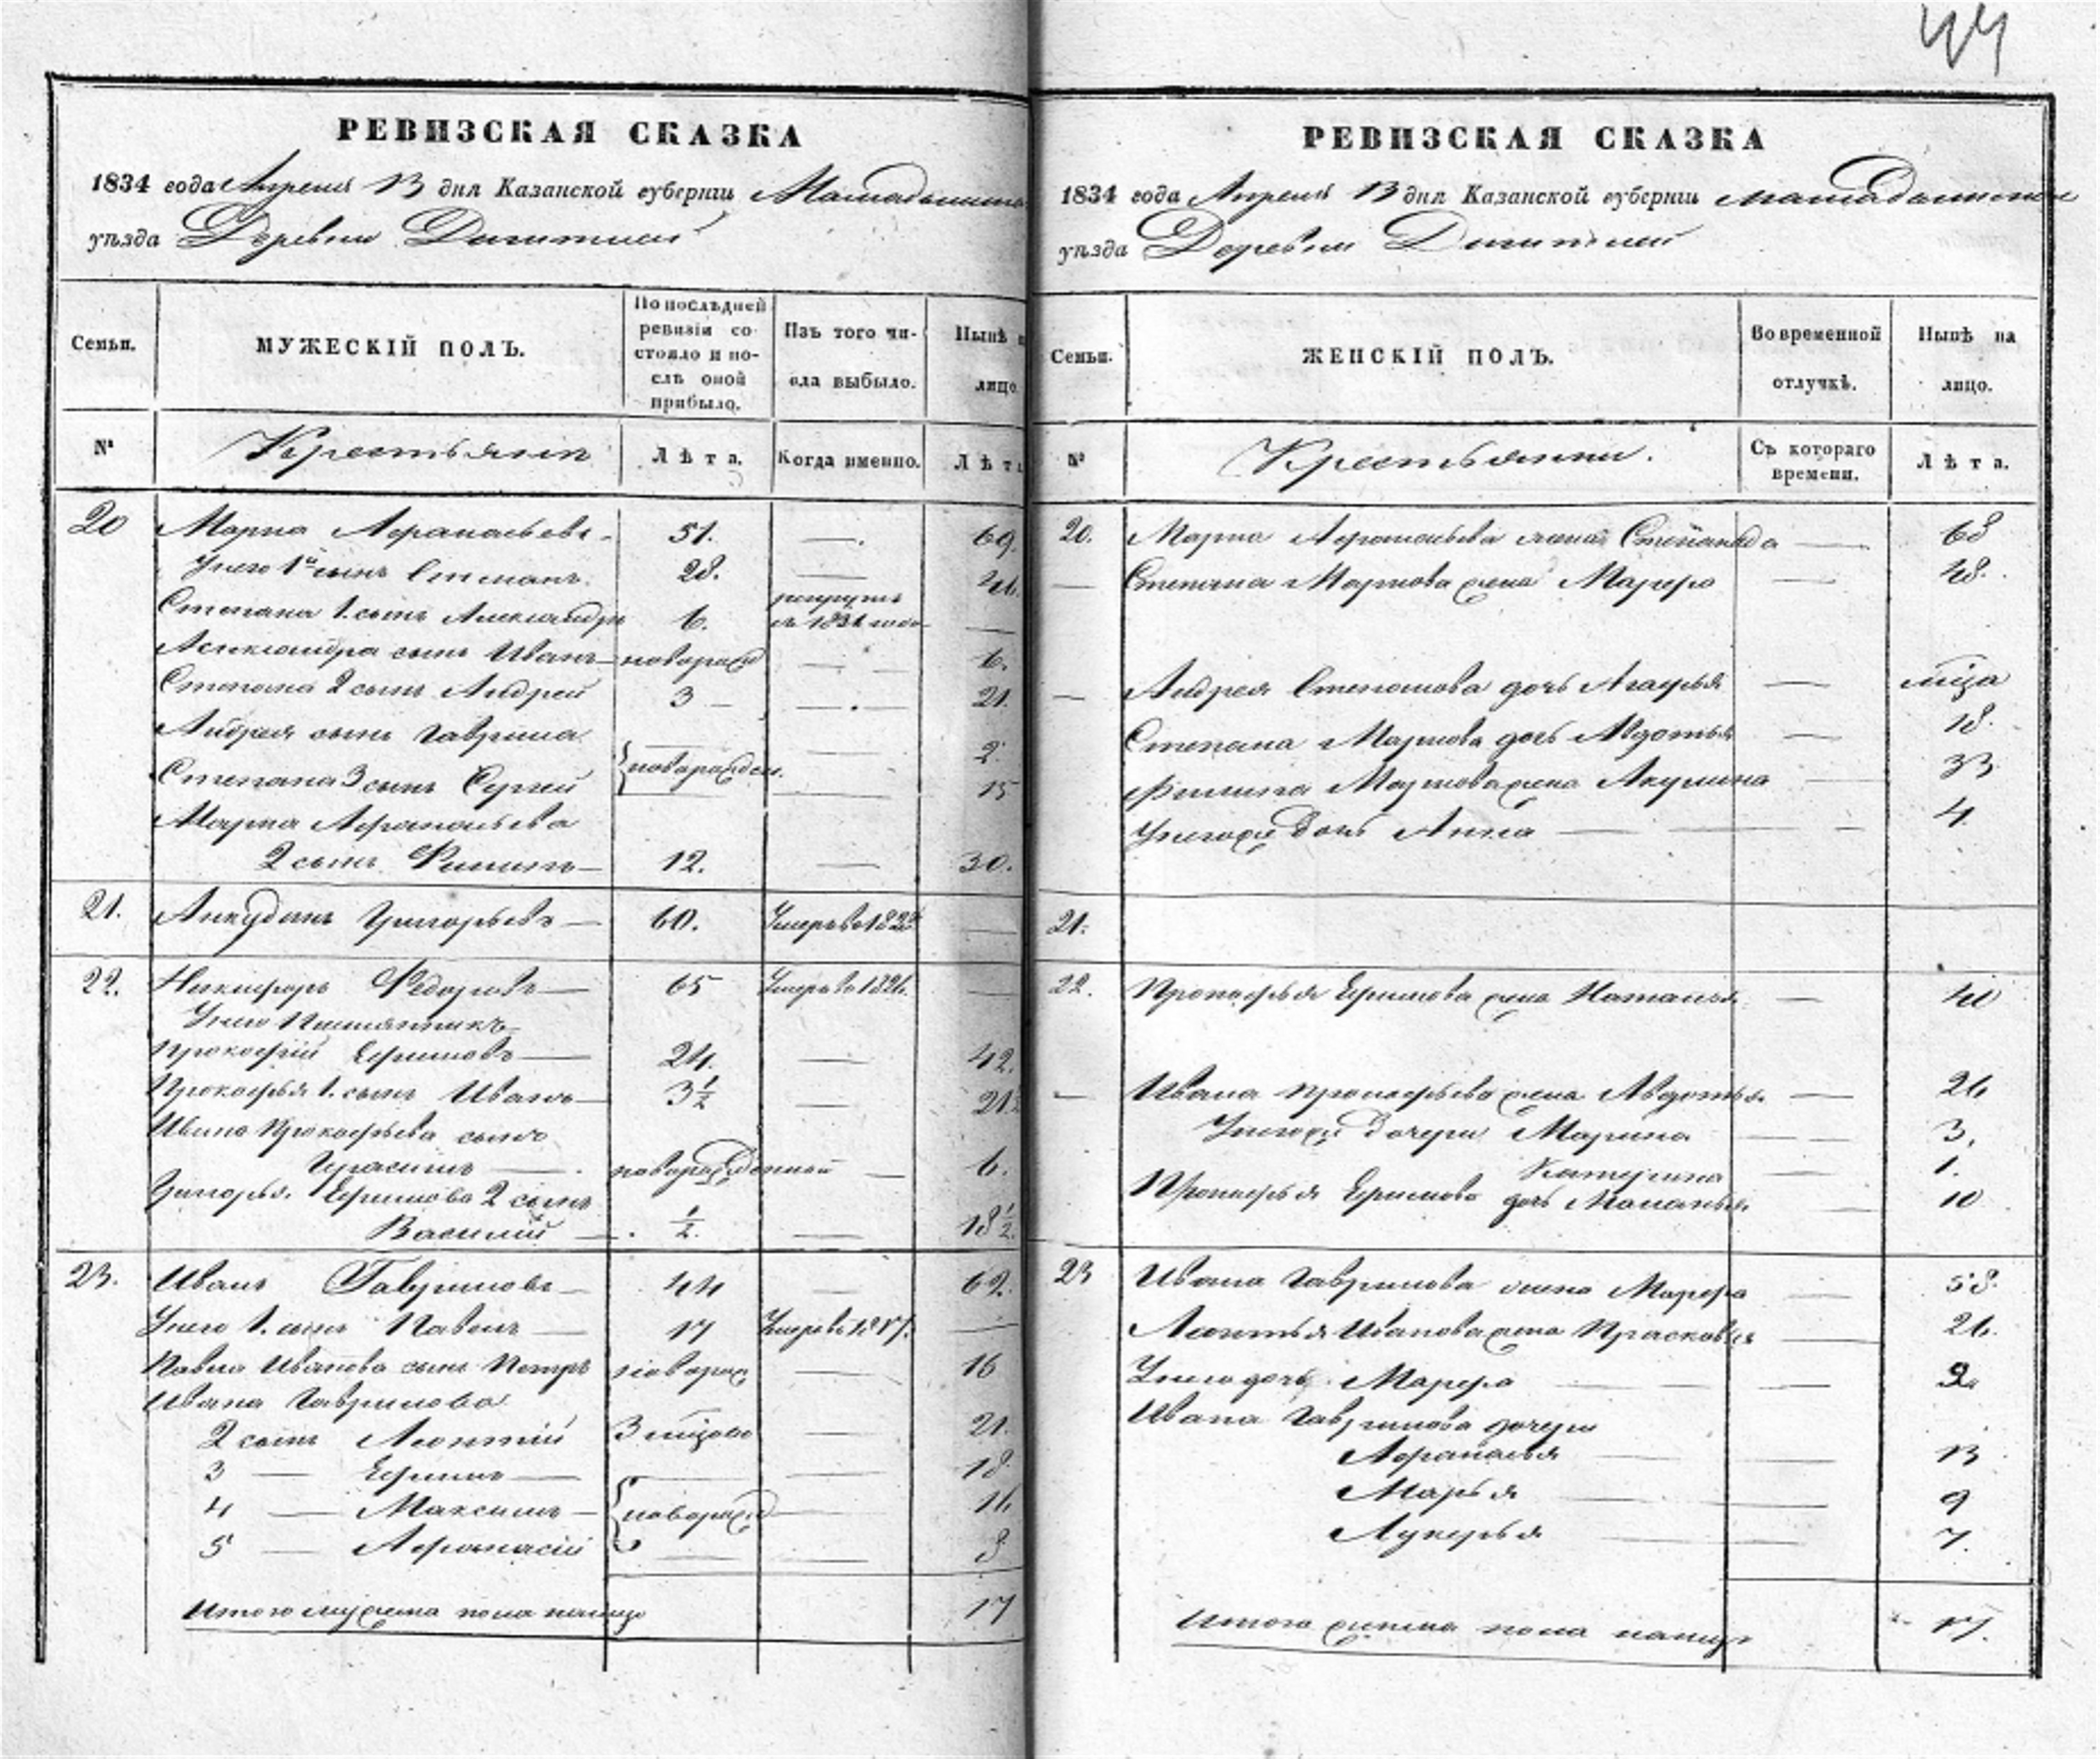 44
РЕВИЗСКАЯ СКАЗКА
1834 года Апреля 13 дня Казанской губерніи Мамадышска
уѣзда Деревни
Семьи.
МУЖЕСКІЙ ПОЛЪ.
По послѣдней ревизіи состояло и послѣ оной прибыло.
Изъ того числа выбыло.
Нынѣ на лицо.
№
Крестьяне
Лѣта.
Когда именно.
Лѣта
20 Марка Афанасьевъ 51. — 69.
У него 1й сынъ Степанъ 28. — 46.
Степана 1. сынъ Александръ 6. рекрутъ въ 1831 годе —
Александра сынъ Иванъ новорожд — 6.
Степана 2 сынъ Андрей 3 — 21.
Андрея сынъ Гаврила — 2.
новорожден.
Степана 3 сынъ Сергей — 15
Марка Афанасьева
2 сынъ Филипъ 12. — 30.
21. Анкудинъ Григорьевъ 60. Умеръ в 182 —
22. Никифоръ Федоровъ 65 Умеръ в 1826. —
У него Племянникъ
Прокофій Ефимовъ 24. — 42.
Прокофья 1. сынъ Иванъ 3 1/2 — 21
Ивана Прокофьева сынъ
Герасимъ новорожденной — 6.
Ефимова 2 сынъ
Василій 1/2 — 18 1/2
23. Иванъ Гавриловъ 44 — 62.
У него 1. сынъ Павелъ 17 Умеръ в 1817. —
Павла Иванова сынъ Петръ новорож — 16
Ивана Гаврилова
2 сынъ Леонтій 3 мѣсяцовъ — 21.
3 — Ефимъ — 18
4 — Максимъ новорожд — 16
5 — Афонасій — 8
Итого мужеска пола налицо 17
РЕВИЗСКАЯ СКАЗКА
1834 года Апреля 13 дня Казанской губерніи Мамадышска
уѣзда Деревни
Семьи.
ЖЕНСКІЙ ПОЛЪ.
Во временной отлучкѣ.
Нынѣ на лицо.
№
Крестьянки.
Съ котораго времени.
Лѣта.
20. Марка Афонасьева жена Степанида — 68
— Степана Маркова жена Марфа — 48.
— Андрея Степанова дочь Агафья — мѣсяца
Степана Маркова дочь Авдотья — 18.
Филипа Маркова жена Акулина — 33
У негоже дочь Анна — 4.
21.
22. Прокофья Ефимова жена Наталья — 40
— Ивана Прокофьева жена Авдотья — 26
У негоже дочери Марина — 3.
Катерина — 1.
Прокофья Ефимова дочь Маланья 10
23 Ивана Гаврилова жена Марфа — 58.
Леонтья Иванова жена Прасковья — 26.
У него дочь Марфа — 2
Ивана Гаврилова дочери
Афанасья — 13
Марья — 9
Лукерья — 7.
Итого женска пола налицо 17.